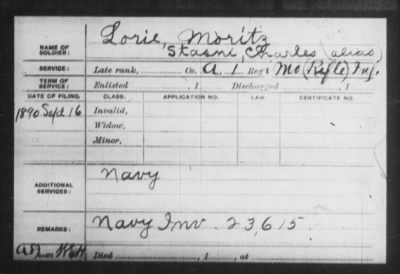 Lorie, Moritz
NAME OF SOLDIER: Stasni, Charles (alias)
SERVICE: Late rank, Co. A, 1 Reg't Mo (Rifle) Inf.
TERM OF SERVICE: Enlisted , 1 Discharged , 1
DATE OF FILING. CLASS. APPLICATION NO. LAW. CERTIFICATE NO.
1890 Sept. 16 Invalid,
Widow,
Minor,
ADDITIONAL SERVICES: Navy
REMARKS: Navy Inv 23,615.
Died , 1 , at